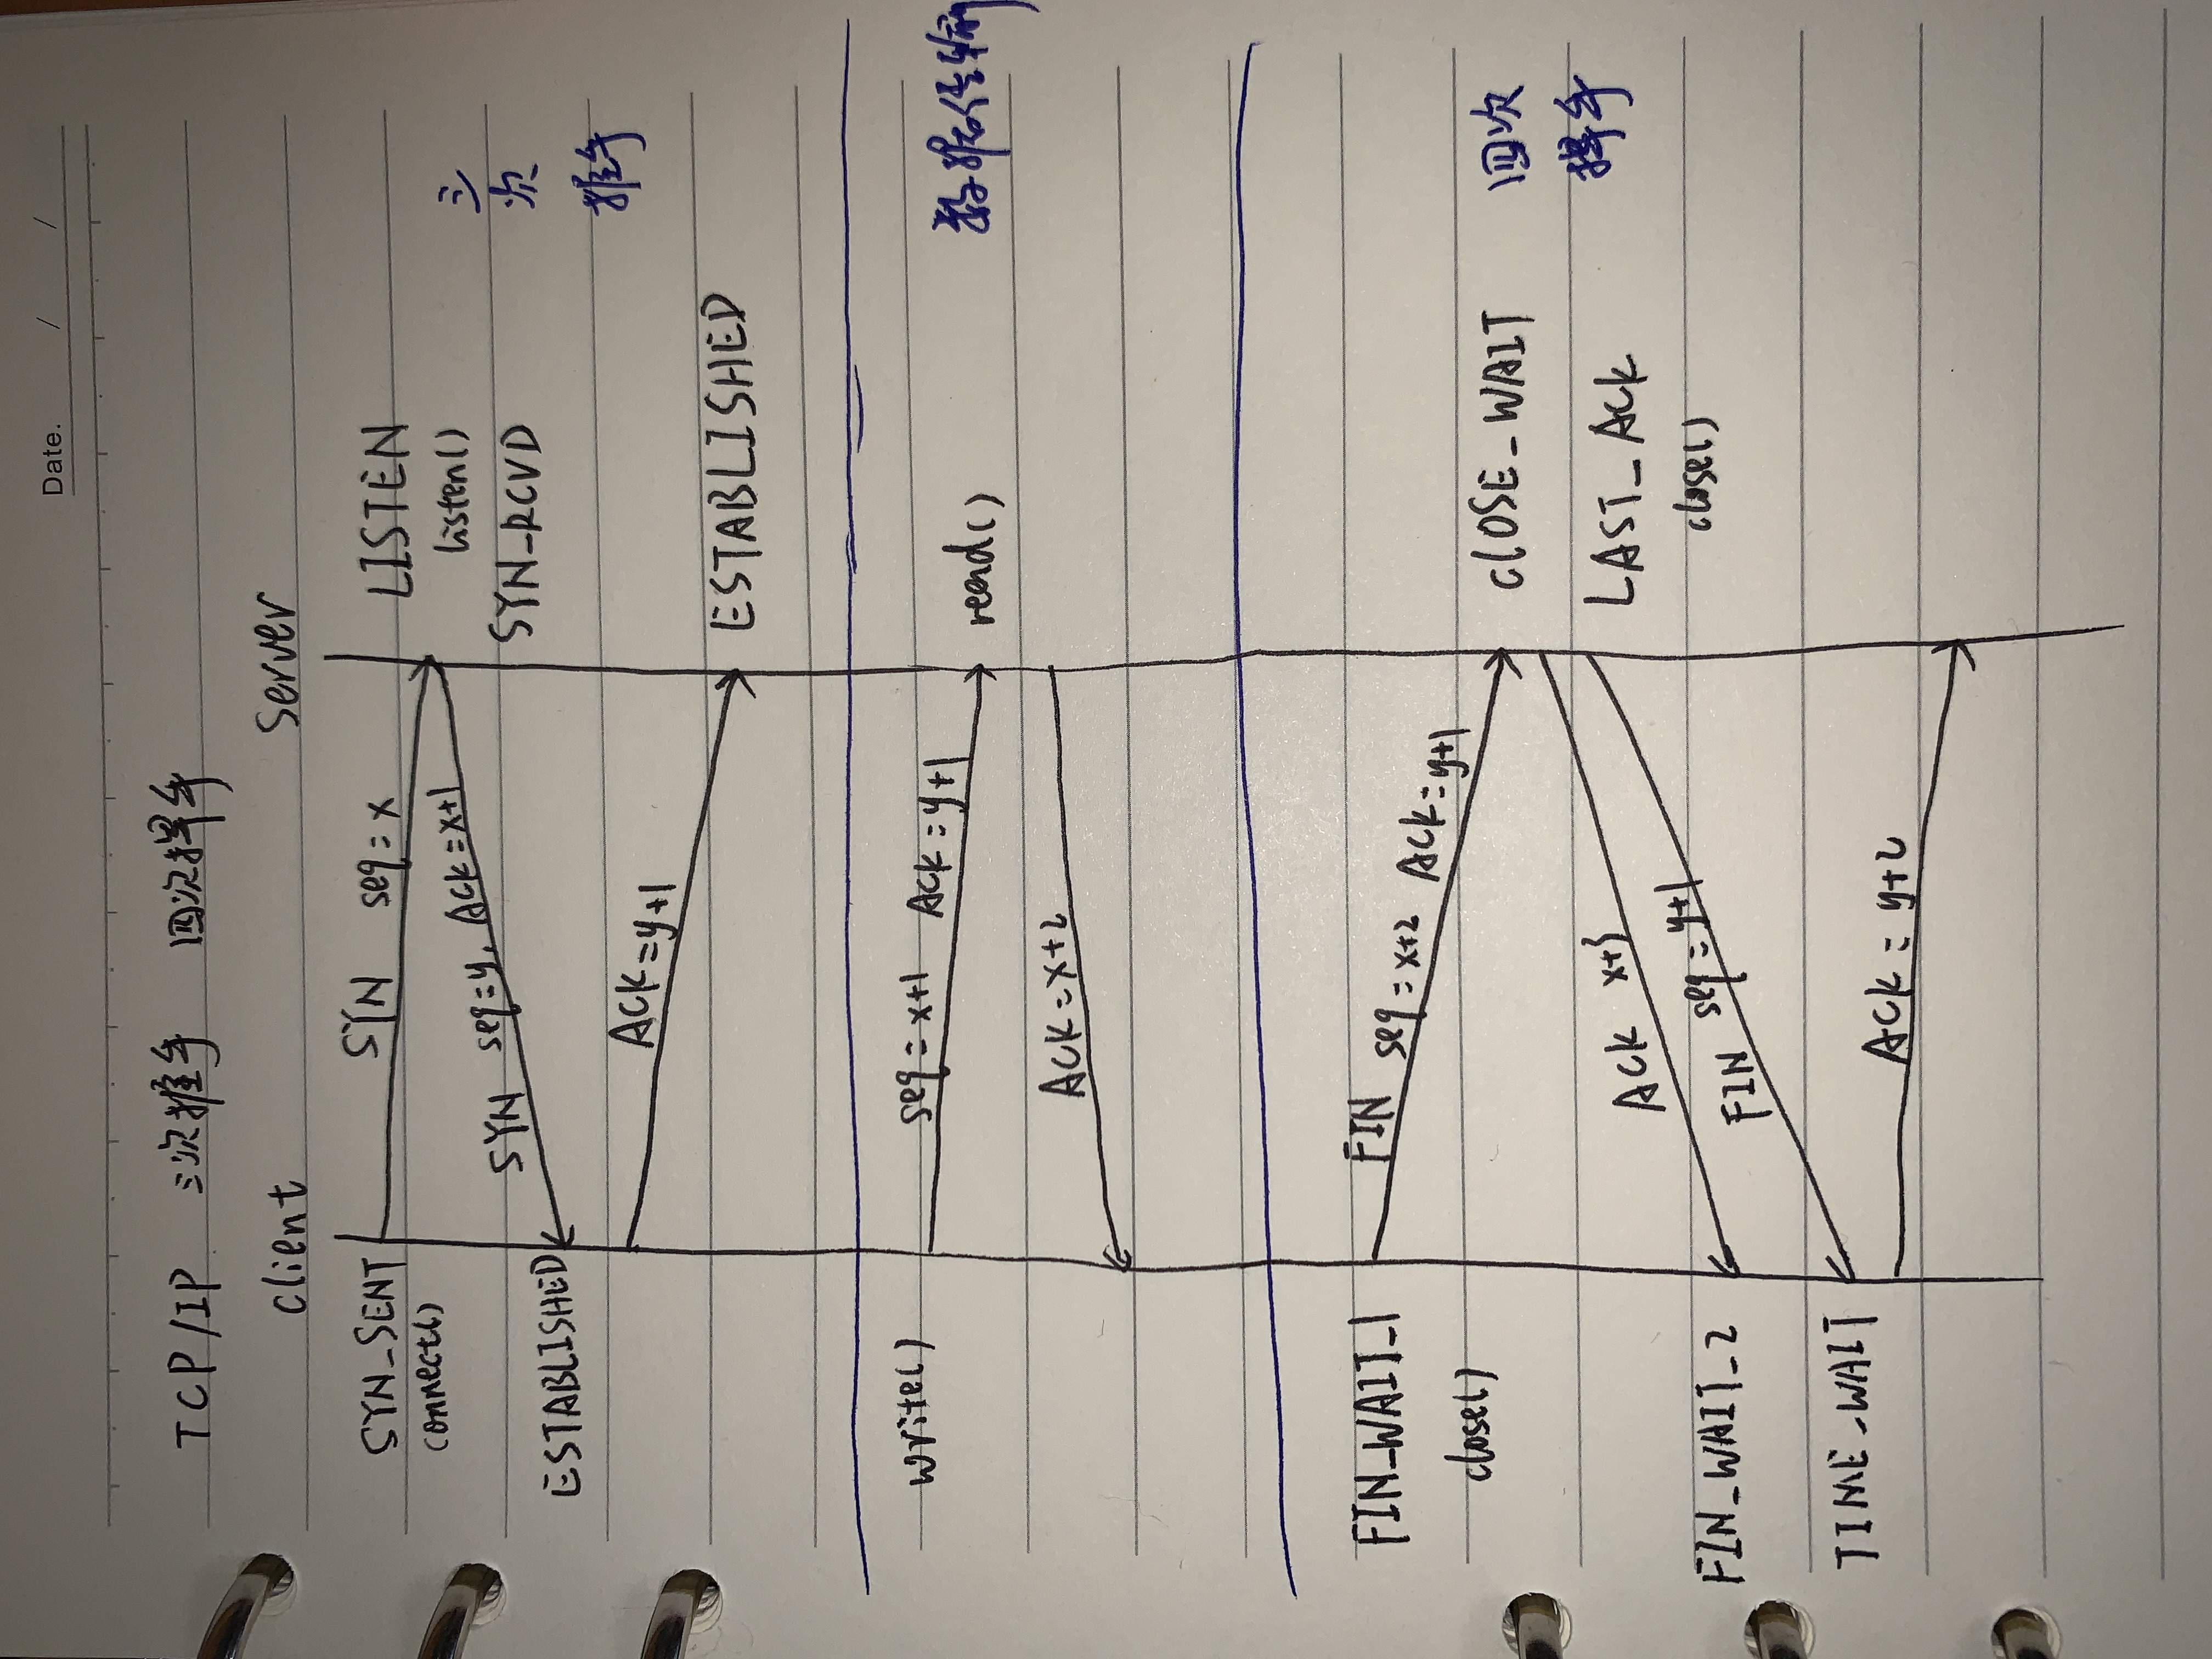 Date. / /
TCP/IP 三次握手 四次挥手
client Server
SYN_SENT SYN seq=x LISTEN
connect() listen()
SYN seq=y, Ack=x+1 三
SYN_RCVD 次
ESTABLISHED 握手
Ack=y+1
ESTABLISHED
write() seq=x+1 Ack=y+1 read() 数据传输
Ack=x+2
FIN_WAIT_1 FIN seq=x+2 Ack=y+1
close() CLOSE_WAIT 四次
挥手
Ack x+3 LAST_Ack
FIN_WAIT_2 FIN seq=y+1 close()
TIME_WAIT
Ack=y+2